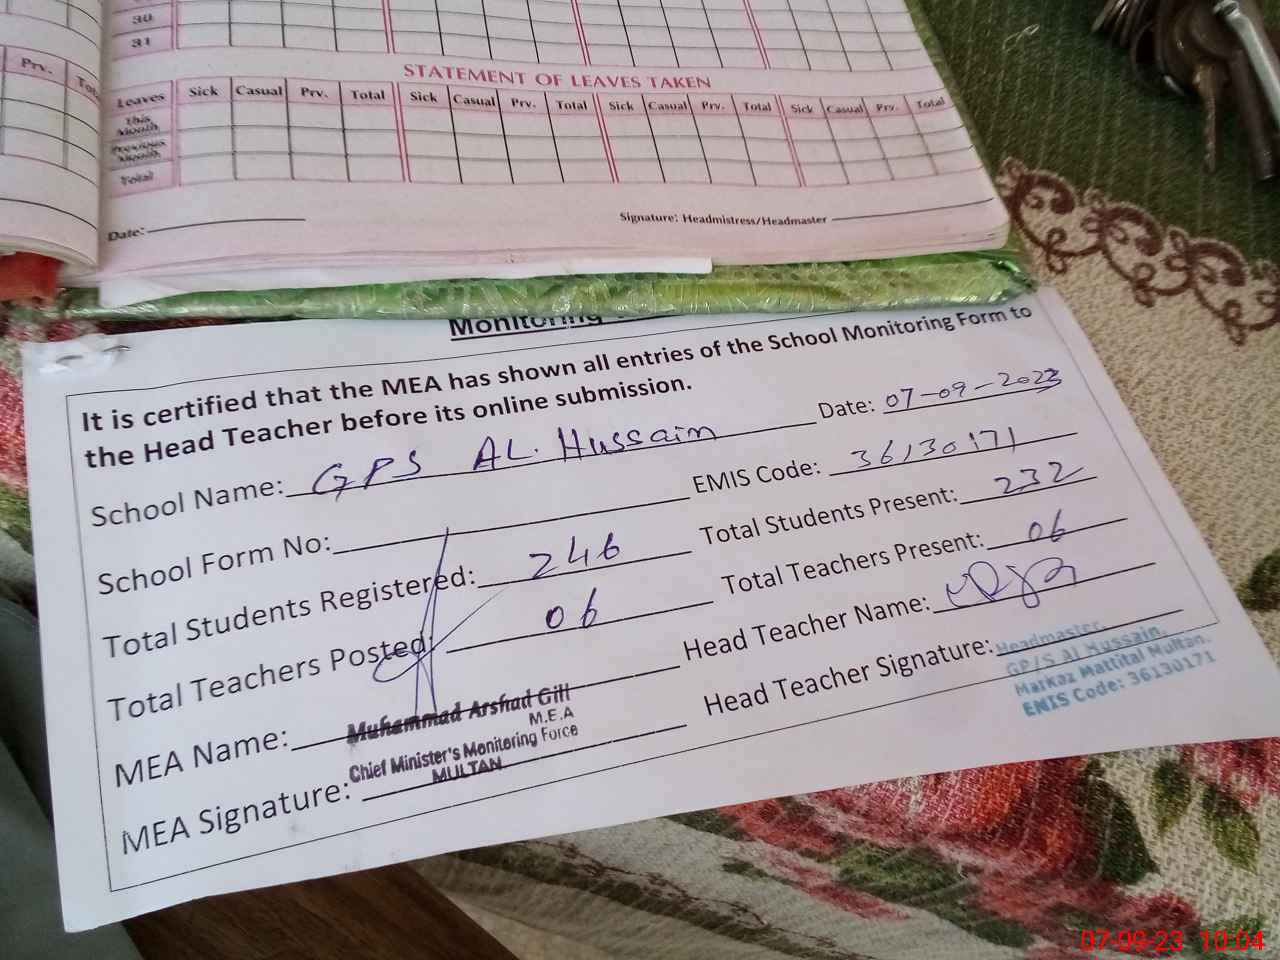 30
31
Prv. Total
STATEMENT OF LEAVES TAKEN
Leaves Sick Casual Prv. Total Sick Casual Prv. Total Sick Casual Prv. Total Sick Casual Prv. Total
This Month
Previous Month
Total
Date: Signature: Headmistress/Headmaster
Monitoring
It is certified that the MEA has shown all entries of the School Monitoring Form to
the Head Teacher before its online submission.
Date: 07-09-2023
School Name: GPS AL. Hussain
EMIS Code: 36130171
School Form No:
Total Students Present: 232
Total Students Registered: 246
Total Teachers Present: 06
Total Teachers Posted: 06
Head Teacher Name:
MEA Name: Muhammad Arshad Gill
M.E.A
Chief Minister's Monitoring Force
MULTAN
Head Teacher Signature:
Headmaster,
GP/S Al Hussain,
Markaz Mattital Multan.
EMIS Code: 36130171
MEA Signature:
07-09-23 10:04